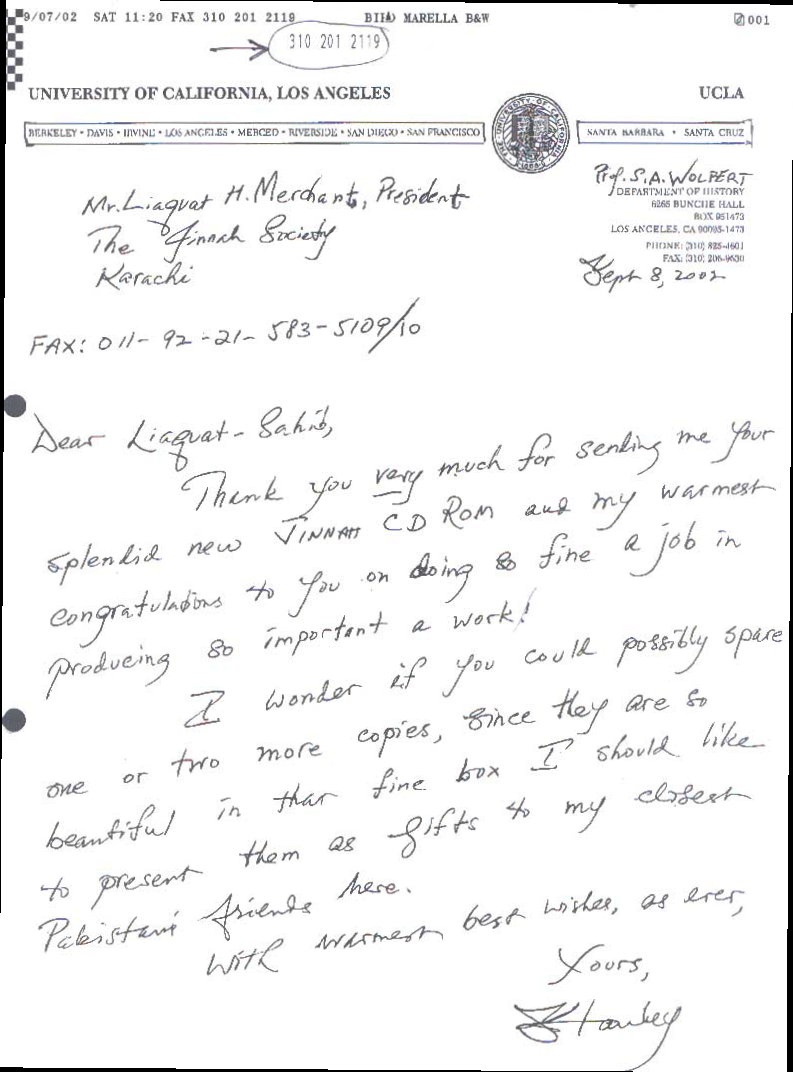 9/07/02 SAT 11:20 FAX 310 201 2119 MARELLA B&W 001
310 201 2119
UNIVERSITY OF CALIFORNIA, LOS ANGELES UCLA
BERKELEY • DAVIS • IRVINE • LOS ANGELES • MERCED • RIVERSIDE • SAN DIEGO • SAN FRANCISCO SANTA BARBARA • SANTA CRUZ
Prof. S.A. WOLPERT
DEPARTMENT OF HISTORY
6265 BUNCHE HALL
BOX 951473
LOS ANGELES, CA 90095-1473
PHONE: (310) 825-4601
FAX: (310) 206-9630
Sept 8, 2002
Mr. Liaquat H. Merchant, President
The Jinnah Society
Karachi
FAX: 011-92-21-583-5109/10
Dear Liaquat-Sahib,
Thank you very much for sending me your
splendid new JINNAH CD ROM and my warmest
congratulations to you on doing so fine a job in
producing so important a work!
I wonder if you could possibly spare
one or two more copies, since they are so
beautiful in that fine box I should like
to present them as gifts to my closest
Pakistani friends here.
With warmest best wishes, as ever,
Yours,
Stanley